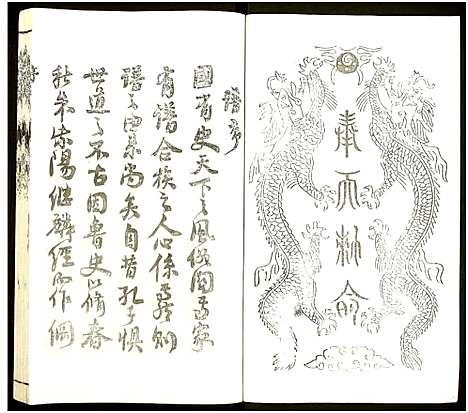 奉天敕命
譜序
國有史天下之風俗関焉家
有譜合族之人心係焉則
譜之由來尚矣自昔孔子懼
世道之不古因魯史以修春
秋朱紫陽繼麟經而作綱